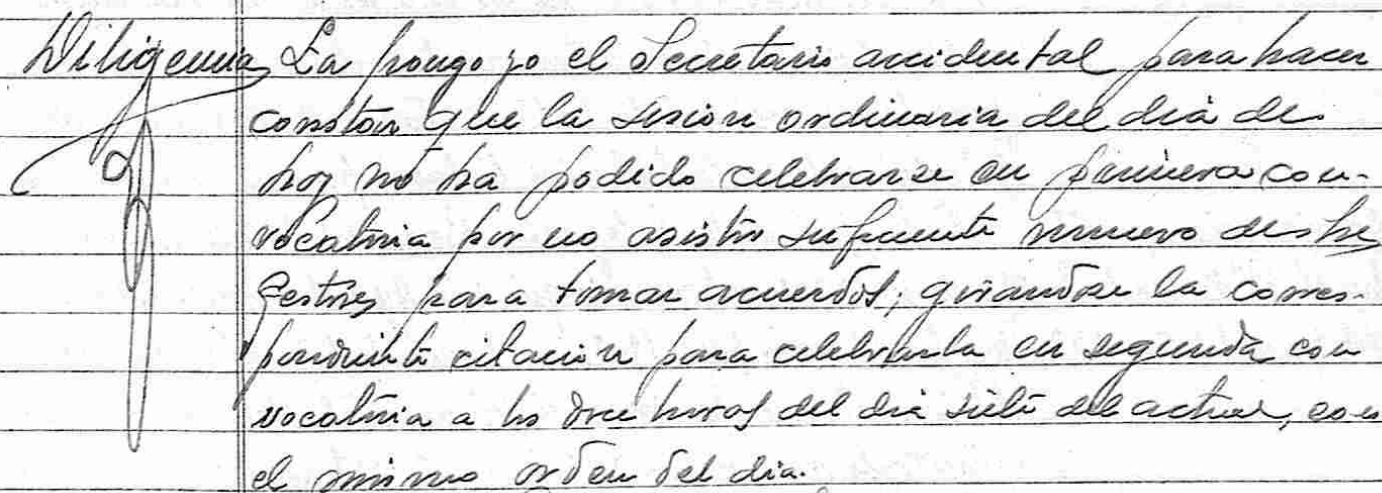 Diligencia, La pongo yo el Secretario accidental para hacer
constar que la sesion ordinaria del dia de
hoy no ha podido celebrarse en primera con-
vocatoria por no asistir suficiente numero de los
Gestores para tomar acuerdos, girandose la corres-
pondiente citación para celebrarla en segunda con
vocatoria a las doce horas del dia siete del actual, con
el mismo orden del dia.